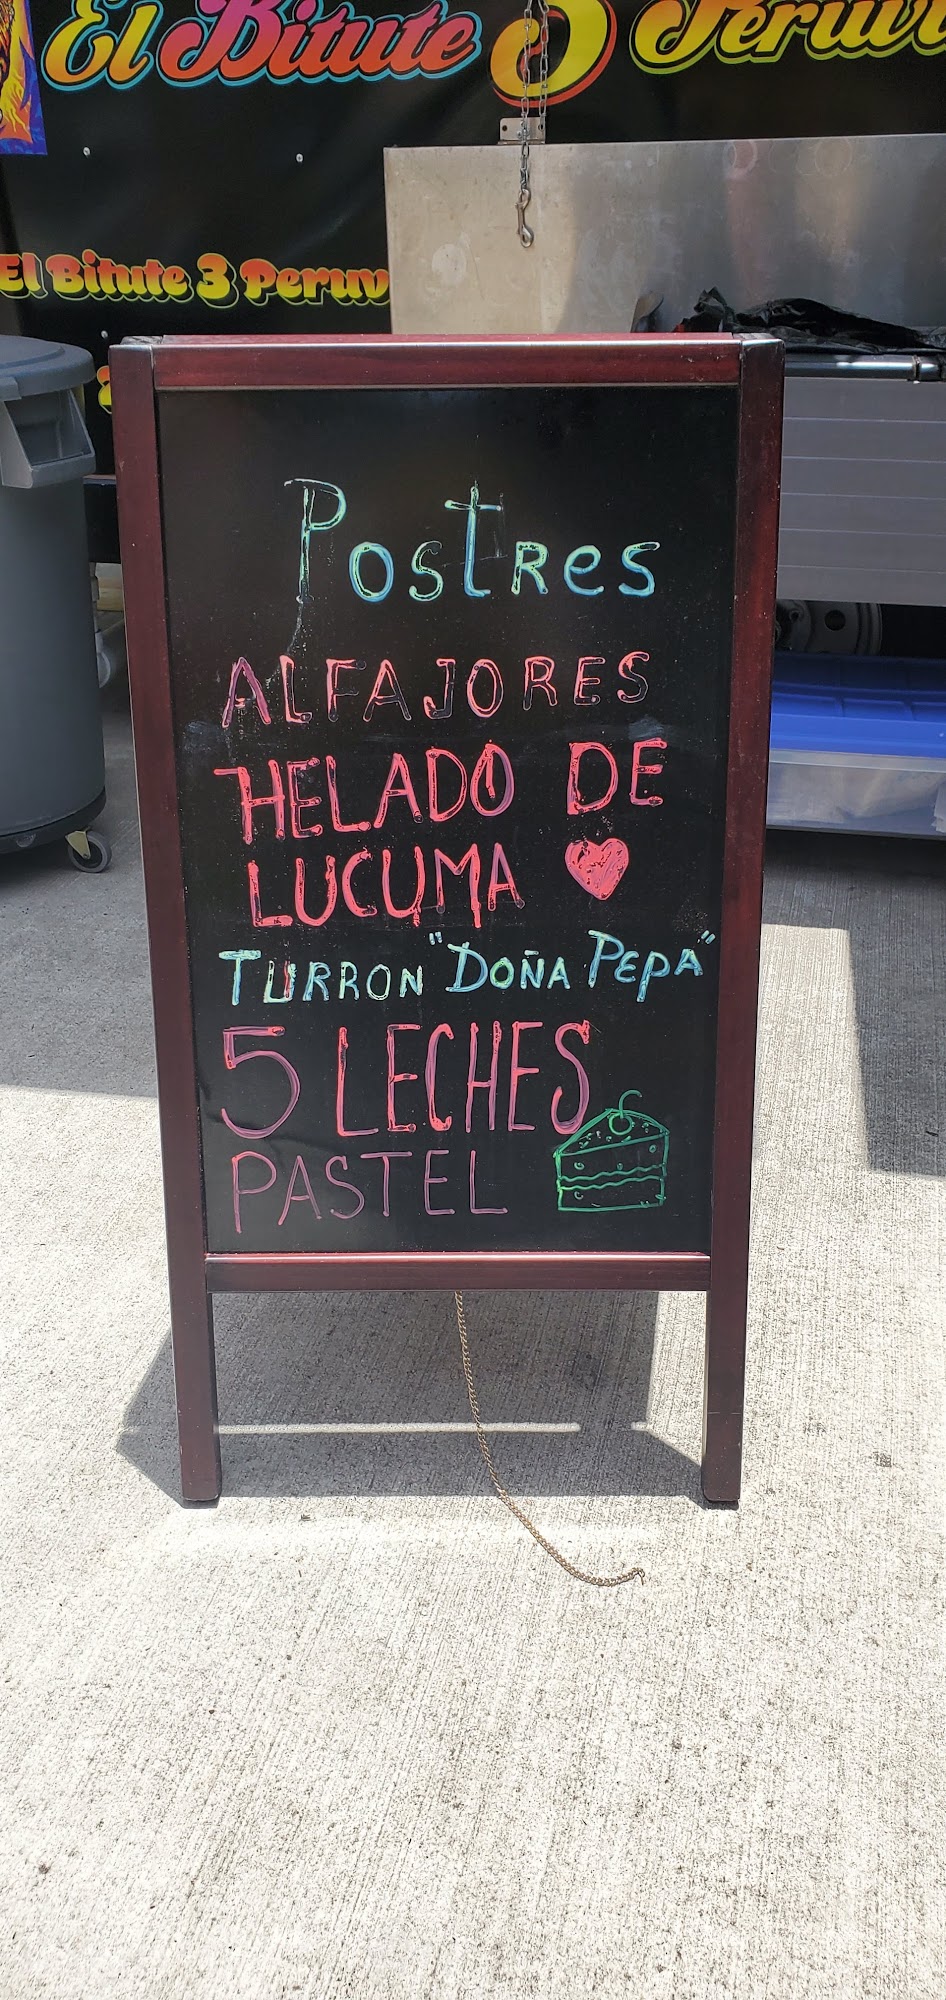 El Bitute 3 Peruv
El Bitute 3 Peruv
Postres
ALFAJORES
HELADO DE
LUCUMA
TURRON "DOÑA PEPA"
5 LECHES
PASTEL